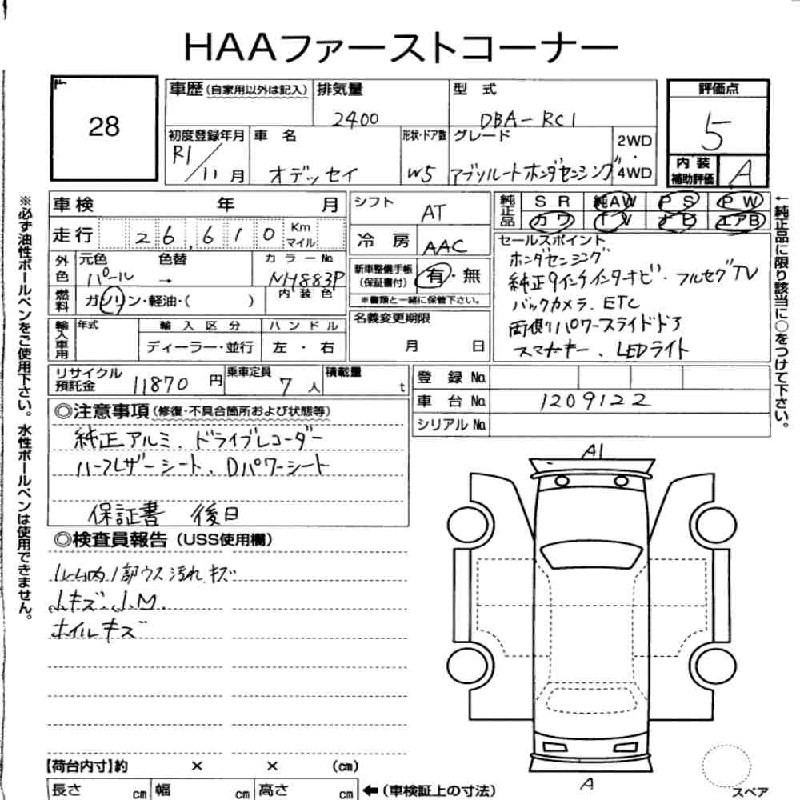 HAAファーストコーナー
28
車歴 (自家用以外は記入)
排気量
2400
型式
DBA-RC1
評価点
5
初度登録年月
R1/11月
車名
オデッセイ
形状・ドア数
W5
グレード
アブソルートホンダセンシング
2WD
4WD
内装
補助評価
A
車検 年 月
走行 26,610 Km マイル
シフト
AT
冷房
AAC
純正品
SR 純AW PS PW
カワ ナビ エアB
外色
元色
パール
色替
→
カラーNo
NH883P
内装色
燃料
ガソリン・軽油・( )
新車整備手帳
(保証書付)
有・無
※書類と一緒に保管下さい。
セールスポイント
ホンダセンシング
純正9インチインターナビ・フルセグTV
バックカメラ、ETC
両側パワースライドドア
スマートキー、LEDライト
輸入車用
年式
輸入区分
ディーラー・並行
ハンドル
左・右
名義変更期限
月 日
リサイクル
預託金
11870円
乗車定員
7人
積載量
t
登録No
車台No
1209122
シリアルNo
◎注意事項 (修復・不具合箇所および状態等)
純正アルミ、ドライブレコーダー
ハーフレザーシート、Dパワーシート
保証書 後日
◎検査員報告 (USS使用欄)
ルーム内1部ウス汚れキズ
小キズ、小M.
ホイルキズ
A1
A
スペア
【荷台内寸】約 × × (cm)
長さ cm 幅 cm 高さ cm ←(車検証上の寸法)
※必ず油性ボールペンをご使用下さい。水性ボールペンは使用できません。
←純正品に限り該当に○をつけて下さい。